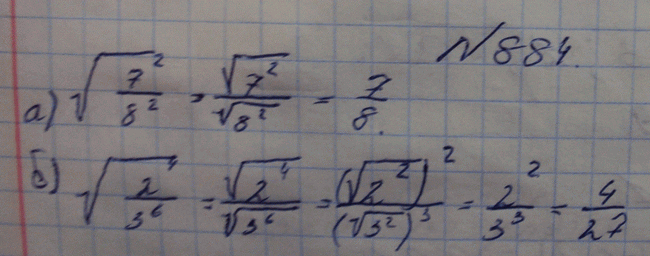 N884.
а) √(7²/8²) = √7²/√8² = 7/8.
б) √(2⁴/3⁶) = √2⁴/√3⁶ = (√2²)²/(√3²)³ = 2²/3³ = 4/27